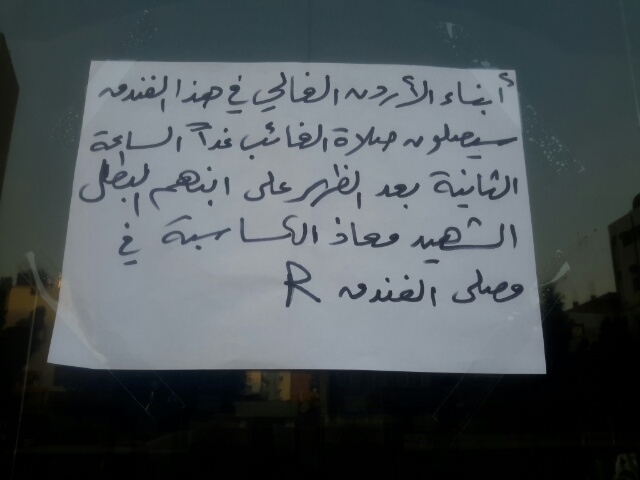 أبناء الأردن الغالي في هذا الفندق
سيصلون صلاة الغائب غداً الساعة
الثانية بعد الظهر على ابنهم البطل
الشهيد معاذ الكساسبة في
مصلى الفندق R